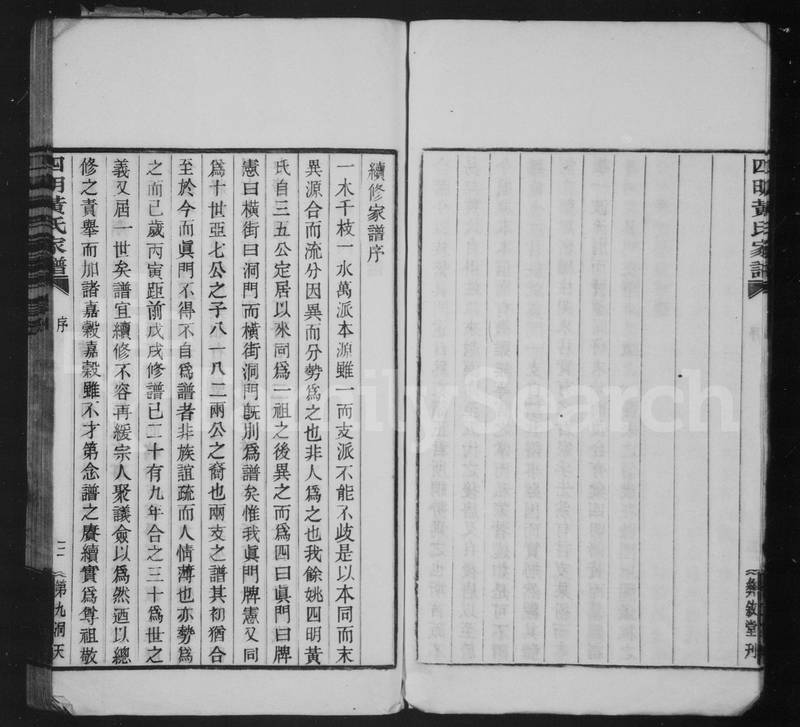 四明黃氏家譜
彝敘堂刋
續修家譜序
一木千枝一水萬派本源雖一而支派不能不歧是以本同而末
異源合而流分因異而分勢爲之也非人爲之也我餘姚四明黃
氏自三五公定居以來同爲一祖之後異之而爲四曰眞門曰牌
憲曰橫街曰洞門而橫街洞門旣別爲譜矣惟我眞門牌憲又同
爲十世亞七公之子八一八二兩公之裔也兩支之譜其初猶合
至於今而眞門不得不自爲譜者非族誼疏而人情薄也亦勢爲
之而已歲丙寅距前戊戌修譜已二十有九年合之三十爲世之
義又屆一世矣譜宜續修不容再緩宗人聚議僉以爲然迺以總
修之責舉而加諸嘉穀嘉穀雖不才第念譜之賡續實爲尊祖敬
四明黃氏家譜
序
三
第九洞天
FamilySearch